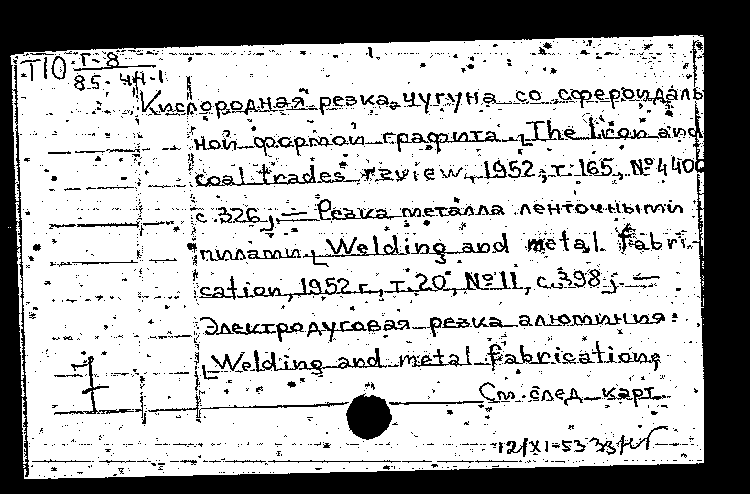 Т10 Т-8
85. 4Н-1
Кислородная резка чугуна со сфероидаль
ной формой графита. [The Iron and
coal trades review, 1952, т. 165, №4400
с. 326]. — Резка металла ленточными
пилами. [Welding and metal fabri-
cation, 1952 г., т. 20, №11, с. 398]. —
Электродуговая резка алюминия.
[Welding and metal fabrication,
См. след. карт.
12/XI-53